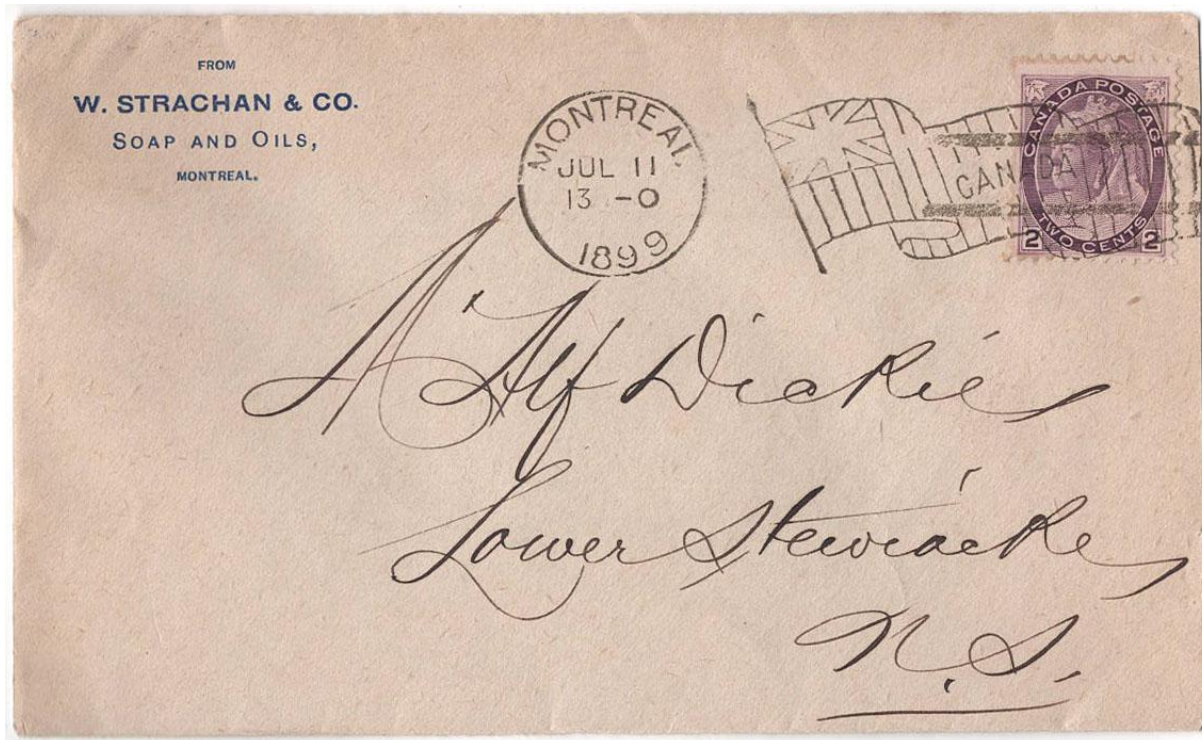 FROM
W. STRACHAN & CO.
SOAP AND OILS,
MONTREAL.
MONTREAL
JUL 11
13 -0
1899
CANADA
CANADA POSTAGE
2 TWO CENTS 2
Alf Dickie
Lower Stewiacke
N.S.